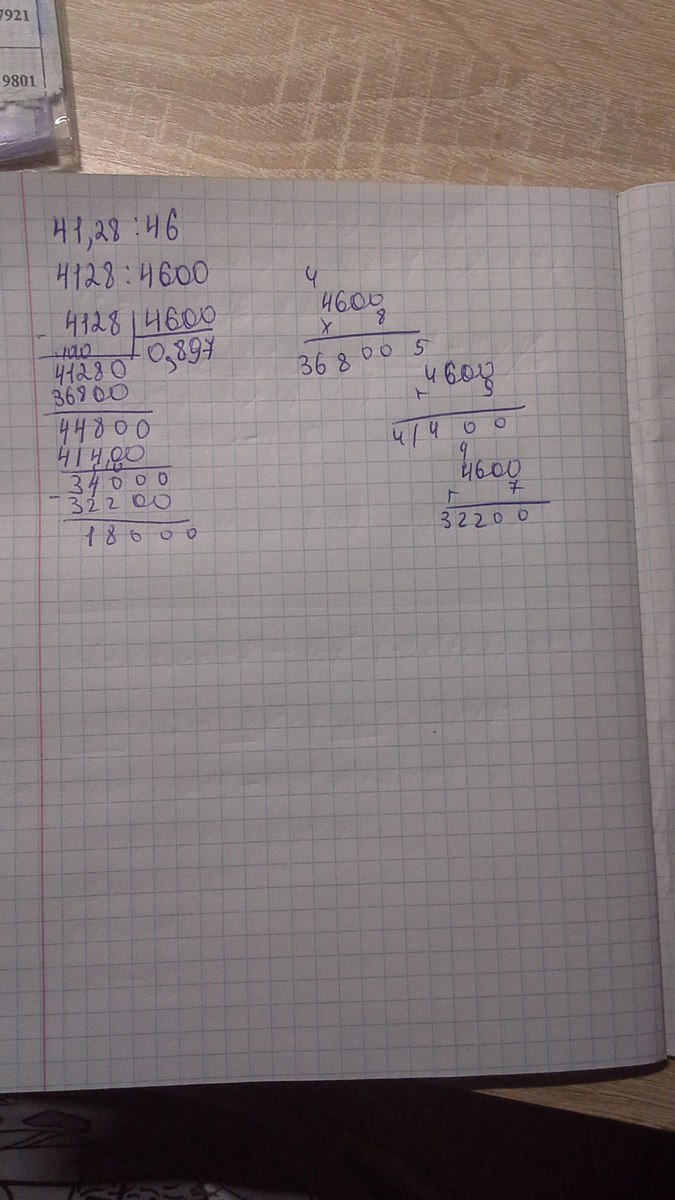 7921
9801
41,28 : 46
4128 : 4600
- 4128 | 4600
0,897
41280
36800
44800
41400
- 34000
32200
18000
4
4600
x 8
36800 5
4600
9
41400
4
4600
7
32200